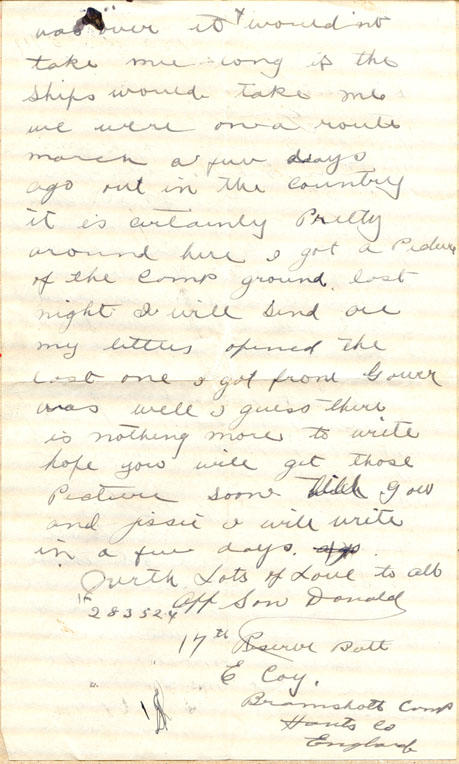 was over it & would nt
take me long if the
Ships would take me
we were on a route
march a few days
ago out in the country
it is certainly Pretty
around here I got a Picture
of the Camp ground last
night I will send
my letters opened the
last one I got from
was well I guess there
is nothing more to write
hope you will get those
Picture soon
and jissie I will write
in a few days.
with Lots of Love to all
283524 Aff Son Donald
17th Reserve Batt
E Coy.
Bramshott Camp
Hants Co
England